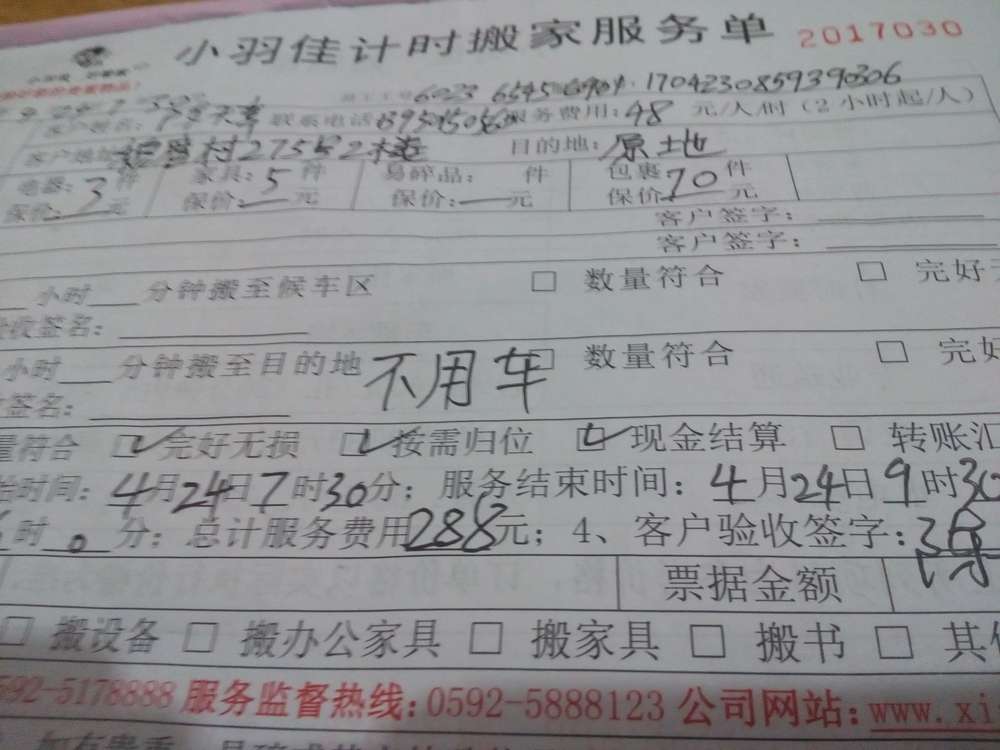 小羽佳计时搬家服务单 2017030
6023 6545 6904 1704230859390306
联系电话 服务费用:48 元/人/时(2小时起/人)
客户地址 村275号2楼 目的地:原地
电器:3件 家具:5件 易碎品: 件 包裹70件
保价:__元 保价:__元 保价:__元 保价 元
客户签字:
客户签字:
小时 分钟搬至候车区 □ 数量符合 □ 完好
收签名:
小时 分钟搬至目的地 不用车 □ 数量符合 □ 完好
签名:
量符合 ☑完好无损 ☑按需归位 ☑现金结算 □ 转账汇
始时间:4月24日7时30分;服务结束时间:4月24日9时30
6时0分;总计服务费用288元;4、客户验收签字:
票据金额
□ 搬设备 □ 搬办公家具 □ 搬家具 □ 搬书 □ 其他
0592-5178888 服务监督热线:0592-5888123 公司网站:www.xi
如有贵重